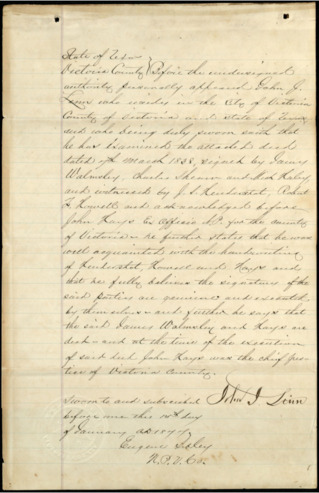 State of Texas
Victoria County } Before the undersigned
authority personally appeared John J.
Linn who resides in the City of Victoria
County of Victoria and State of Texas
and who being duly sworn saith that
he has examined the attached deed
dated 7th March 1838, signed by James
Walmsley, Charles and
and witnessed by J. S. Robert
Howell and acknowledged before
John Hays Ex Officio N.P. for the county
of Victoria he further states that he was
well acquainted with the handwriting
of Howell and Hays and
that he fully believes the signatures of the
said parties are genuine and executed
by themselves and further he says that
the said James Walmsley and Hays are
dead and at the time of the execution
of said deed John Hays was the chief jus-
tice of Victoria County.
Sworn to and subscribed John J Linn
before me this 10th day
of January AD 1877
Eugene Sibley
N.P.V.Co.